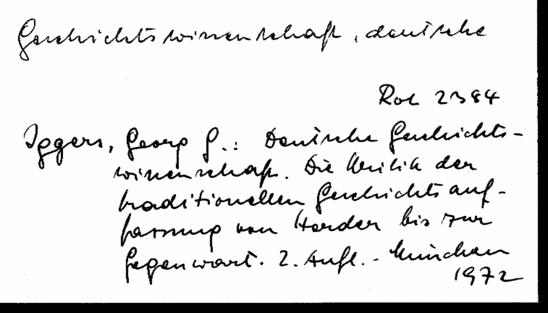 Geschichtswissenschaft, deutsche
Rol 2384
Iggers, Georg G.: Deutsche Geschichts-
wissenschaft. Die Kritik der
traditionellen Geschichtsauf-
fassung von Herder bis zur
Gegenwart. 2. Aufl. - München
1972